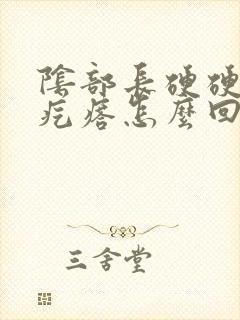 陰部長硬硬
疙瘩怎麼回
三舍堂